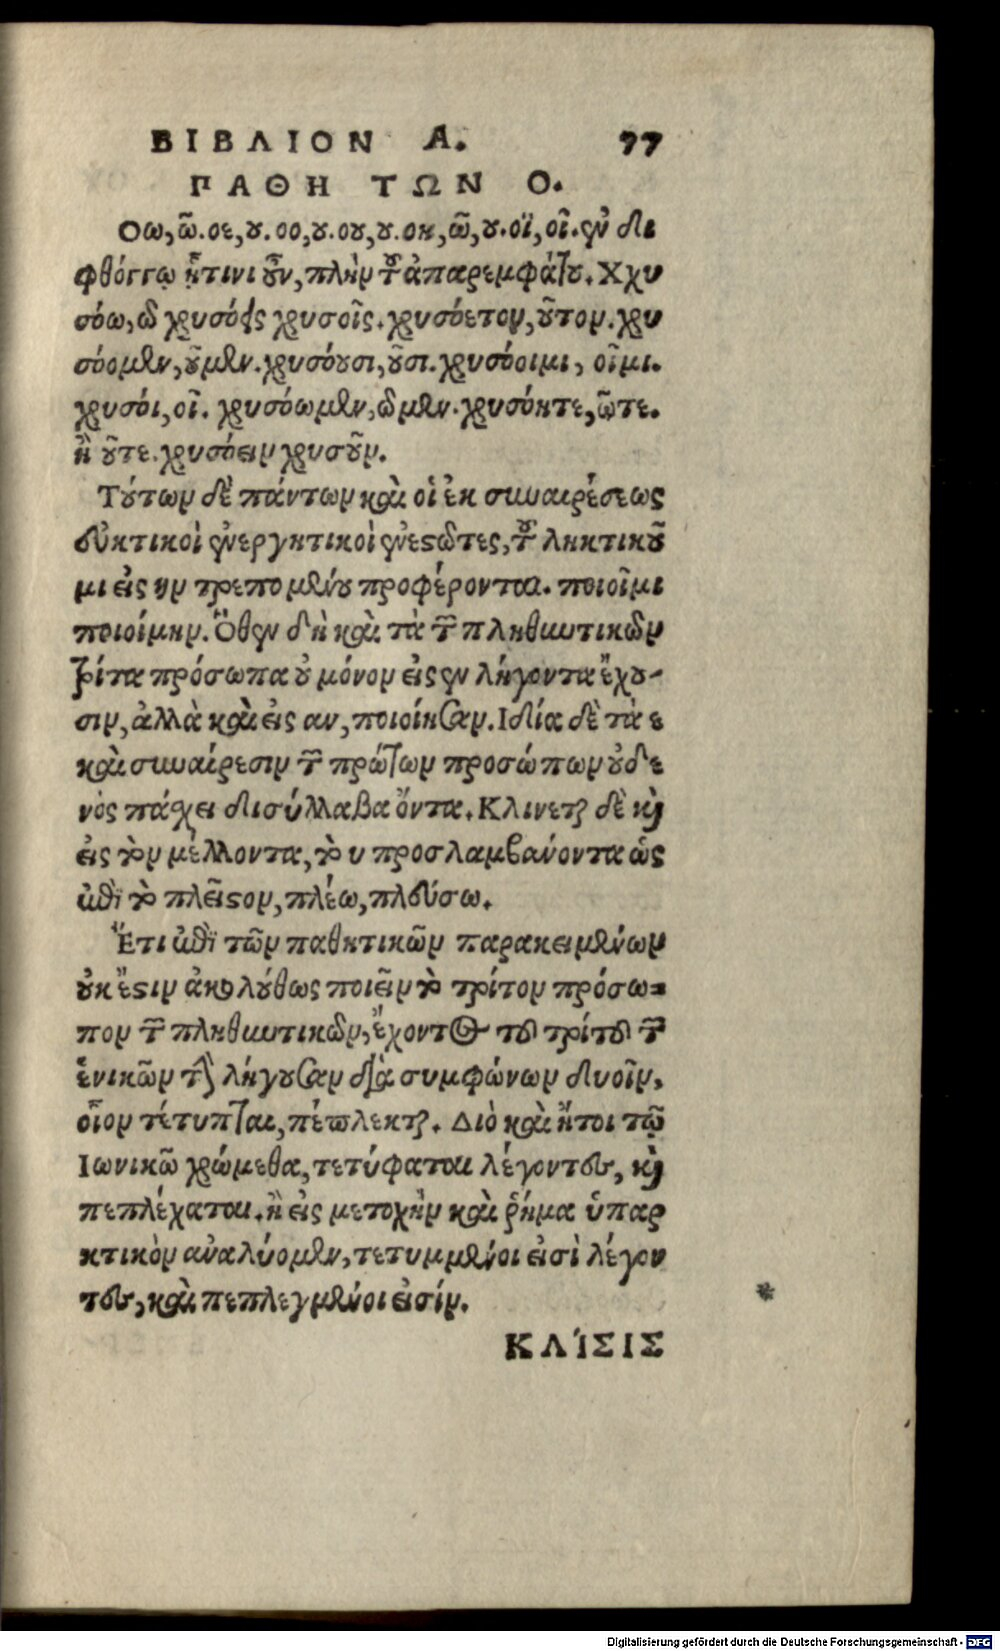 ΒΙΒΛΙΟΝ Α. 77
ΠΑΘΗ ΤΩΝ Ο.
Οω, ῶ. οε, ου. οο, ου. οου, ου. οη, ῶ, ου. οϊ, οῖ. ἐν δι
φθόγγῳ ᾗτινι οὖν, πλὴν τοῦ ἀπαρεμφάτου. Χχυ
σόω, ῶ χρυσόεις χρυσοῖς. χρυσόετον, οῦτον. χρυ
σόομεν, οῦμεν. χρυσόουσι, οῦσι. χρυσόοιμι, οῖμι.
χρυσόι, οῖ. χρυσόωμεν, ῶμεν. χρυσόητε, ῶτε.
ἢ οῦτε. χρυσόειν χρυσοῦν.
Τούτων δὲ πάντων καὶ οἱ ἐκ συναιρέσεως
εὐκτικοὶ ἐνεργητικοὶ ἐνεστῶτες, τοῦ ληκτικοῦ
μι εἰς ην τρεπομένου προφέρονται. ποιοῖμι
ποιοίμην. Ὅθεν δὴ καὶ τὰ τῶν πληθυντικῶν
τρίτα πρόσωπα οὐ μόνον εἰς εν λήγοντα ἔχου-
σιν, ἀλλὰ καὶ εἰς αν, ποιοίησαν. Ιδία δὲ τὰ ε
καὶ συναίρεσιν τῶν πρώτων προσώπων οὐδε
νὸς πάσχει δισύλλαβα ὄντα. Κλίνεται δὲ καὶ
εἰς τὸν μέλλοντα, τὸ υ προσλαμβάνοντα ὡς
ἐπὶ τὸ πλεῖστον, πλέω, πλεύσω.
Ἔτι ἐπὶ τῶν παθητικῶν παρακειμένων
οὐκ ἔστιν ἀκολούθως ποιεῖν τὸ τρίτον πρόσω=
πον τῶν πληθυντικῶν, ἔχοντος τοῦ τρίτου τῶν
ἑνικῶν τὴν λήγουσαν διὰ συμφώνων δυοῖν,
οἷον τέτυπται, πέπλεκται. Διὸ καὶ ἤτοι τῷ
Ιωνικῶ χρώμεθα, τετύφαται λέγοντες, καὶ
πεπλέχαται. ἢ εἰς μετοχὴν καὶ ῥήμα ὑπαρ
κτικὸν ἀναλύομεν, τετυμμένοι εἰσὶ λέγον
τες, καὶ πεπλεγμένοι εἰσίν.
ΚΛΊΣΙΣ
Digitalisierung gefördert durch die Deutsche Forschungsgemeinschaft - DFG